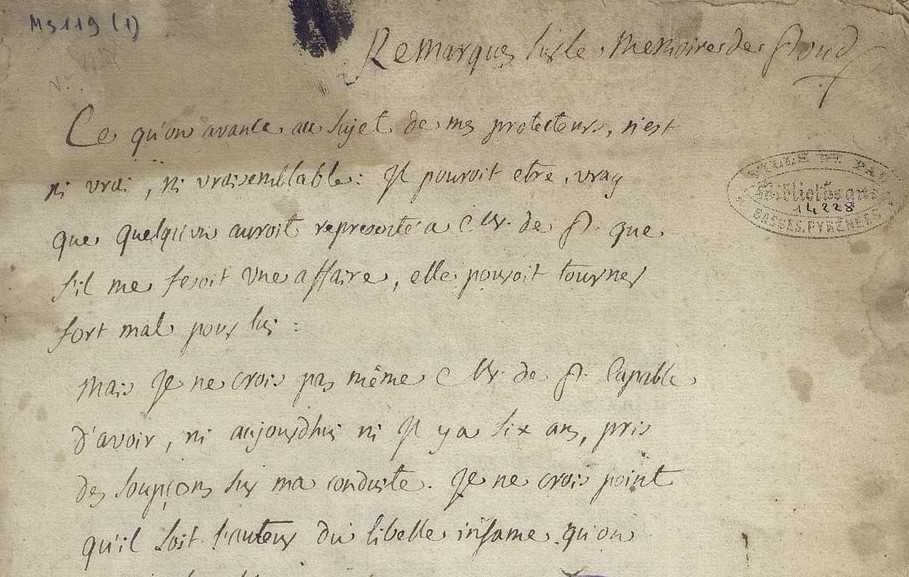 Ms 119 (1)
Remarques sur le Memoire de
Ce qu'on avance au sujet de mes protecteurs, n'est
ni vrai, ni vraisemblable: Il pouroit etre vray
que quelqu'un auroit representé a Mr. de St. que
s'il me fesoit une affaire, elle pouroit tourner
fort mal pour lui:
Mais Je ne crois pas même Mr. de St. Capable
d'avoir, ni aujourdhui ni Il y a six ans, pris
des soupçons sur ma conduite. Je ne crois point
qu'il soit l'auteur du libelle infame qu'on
VILLE DE PAU
Bibliothèque
14228
BASSES-PYRÉNÉES